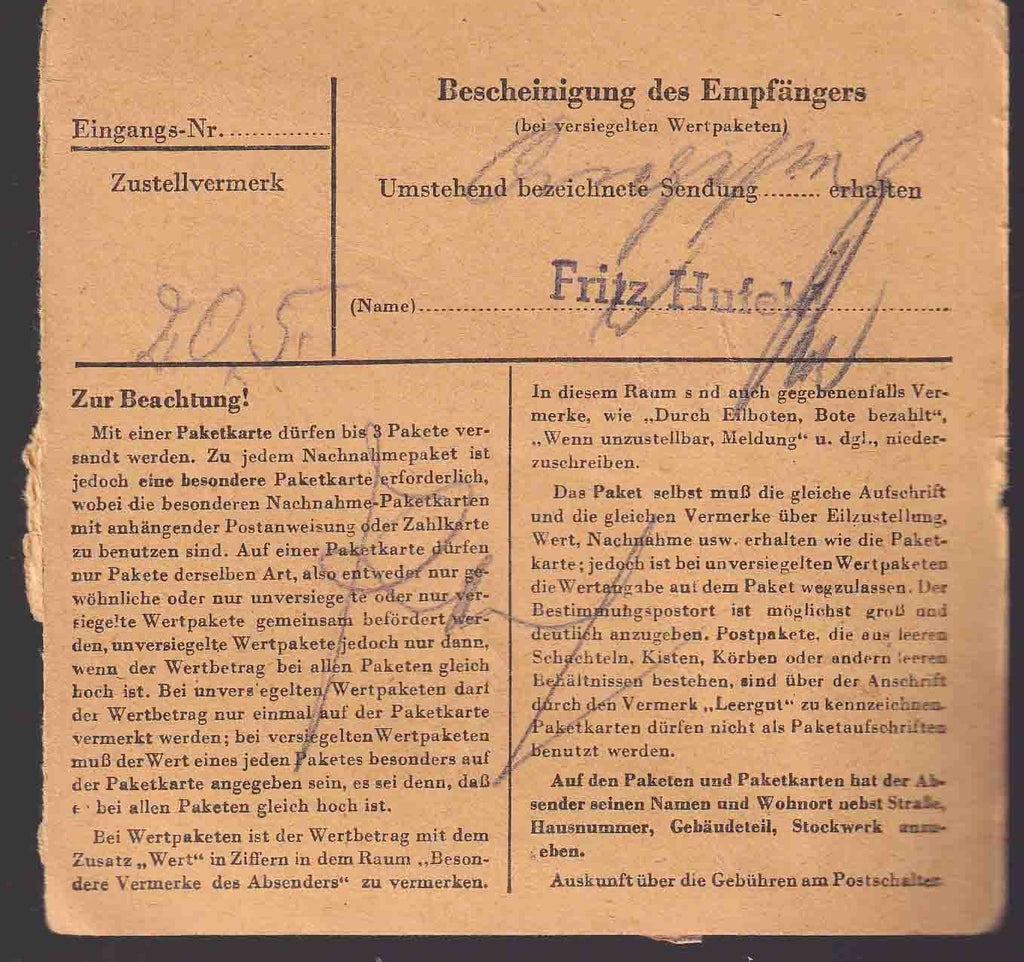 Eingangs-Nr.
Zustellvermerk
20. 5.
Bescheinigung des Empfängers
(bei versiegelten Wertpaketen)
Umstehend bezeichnete Sendung........ erhalten
Fritz Hufeld
(Name)
Zur Beachtung!
Mit einer Paketkarte dürfen bis 3 Pakete ver-
sandt werden. Zu jedem Nachnahmepaket ist
jedoch eine besondere Paketkarte erforderlich,
wobei die besonderen Nachnahme-Paketkarten
mit anhängender Postanweisung oder Zahlkarte
zu benutzen sind. Auf einer Paketkarte dürfen
nur Pakete derselben Art, also entweder nur ge-
wöhnliche oder nur unversiege te oder nur ver-
siegelte Wertpakete gemeinsam befördert wer-
den, unversiegelte Wertpakete jedoch nur dann,
wenn der Wertbetrag bei allen Paketen gleich
hoch ist. Bei unvers egelten Wertpaketen darf
der Wertbetrag nur einmal auf der Paketkarte
vermerkt werden; bei versiegelten Wertpaketen
muß der Wert eines jeden Paketes besonders auf
der Paketkarte angegeben sein, es sei denn, daß
e bei allen Paketen gleich hoch ist.
Bei Wertpaketen ist der Wertbetrag mit dem
Zusatz „Wert“ in Ziffern in dem Raum „Beson-
dere Vermerke des Absenders“ zu vermerken.
In diesem Raum s nd auch gegebenenfalls Ver-
merke, wie „Durch Eilboten, Bote bezahlt“,
„Wenn unzustellbar, Meldung“ u. dgl., nieder-
zuschreiben.
Das Paket selbst muß die gleiche Aufschrift
und die gleichen Vermerke über Eilzustellung,
Wert, Nachnahme usw. erhalten wie die Paket-
karte; jedoch ist bei unversiegelten Wertpaketen
die Wertangabe auf dem Paket wegzulassen. Der
Bestimmungspostort ist möglichst groß und
deutlich anzugeben. Postpakete, die aus leeren
Schachteln, Kisten, Körben oder andern leeren
Behältnissen bestehen, sind über der Anschrift
durch den Vermerk „Leergut“ zu kennzeichnen.
Paketkarten dürfen nicht als Paketaufschriften
benutzt werden.
Auf den Paketen und Paketkarten hat der Ab-
sender seinen Namen und Wohnort nebst Straße,
Hausnummer, Gebäudeteil, Stockwerk anzu-
eben.
Auskunft über die Gebühren am Postschalter